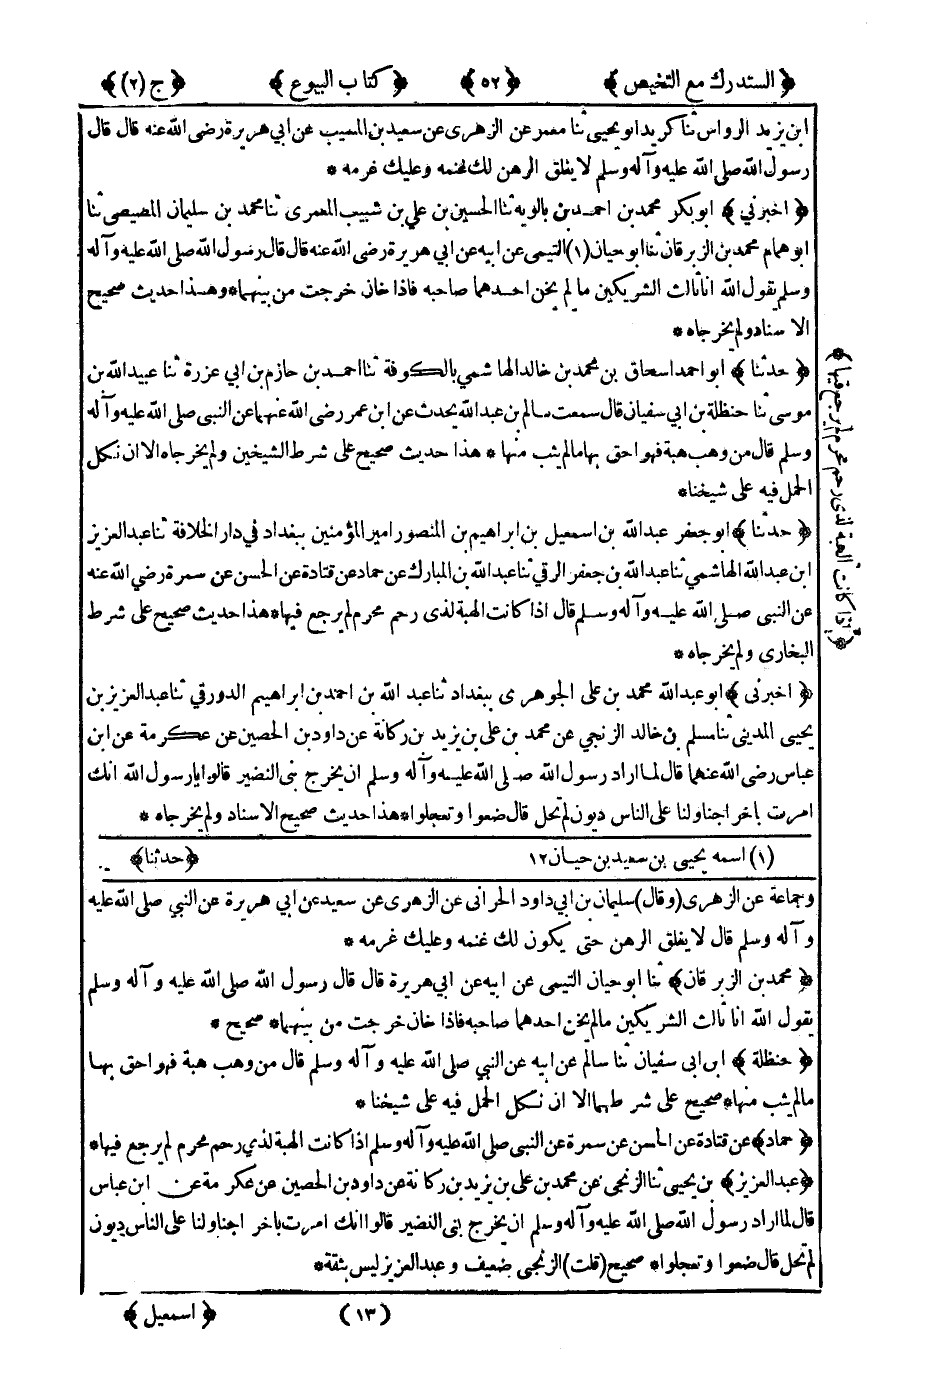 ﴿ المستدرك مع التلخيص ﴾ ﴿ ٥٢ ﴾ ﴿ كتاب البيوع ﴾ ﴿ ج (٢) ﴾
ابن يزيد الرواس ثنا كريد ابو يحيى ثنا معمر عن الزهرى عن سعيد بن المسيب عن ابى هريرة رضى الله عنه قال قال
رسول الله صلى الله عليه وآله وسلم لا يغلق الرهن لك غنمه وعليك غرمه *
﴿ اخبرني ﴾ ابوبكر محمد بن احمد بن بالويه ثنا الحسين بن علي بن شبيب المعمرى ثنا محمد بن سليمان المصيصى ثنا
ابو همام محمد بن الزبرقان ثنا ابو حيان (١) التيمى عن ابيه عن ابى هريرة رضى الله عنه قال قال رسول الله صلى الله عليه وآله
وسلم يقول الله انا ثالث الشريكين ما لم يخن احدهما صاحبه فاذا خان خرجت من بينهما* وهذا حديث صحيح
الاسناد ولم يخرجاه *
﴿ حدثنا ﴾ ابو احمد اسحاق بن محمد بن خالد الهاشمي بالكوفة ثنا احمد بن حازم بن ابي غرزة ثنا عبيد الله بن
موسى ثنا حنظلة بن ابي سفيان قال سمعت سالم بن عبد الله يحدث عن ابن عمر رضى الله عنهما عن النبى صلى الله عليه وآله
وسلم قال من وهب هبة فهو احق بها مالم يثب منها * هذا حديث صحيح على شرط الشيخين ولم يخرجاه الا ان نكل
الحمل فيه على شيخنا*
﴿ حدثنا ﴾ ابو جعفر عبد الله بن اسمعيل بن ابراهيم بن المنصور امير المؤمنين ببغداد في دار الخلافة ثنا عبد العزيز
ابن عبد الله الهاشمي ثنا عبد الله بن جعفر الرقي ثنا عبد الله بن المبارك عن حماد عن قتادة عن الحسن عن سمرة رضي الله عنه
عن النبى صلى الله عليه وآله وسلم قال اذا كانت الهبة لذى رحم محرم لم يرجع فيها* هذا حديث صحيح على شرط
البخارى ولم يخرجاه *
﴿ اخبرنى ﴾ ابو عبد الله محمد بن على الجوهرى ببغداد ثنا عبد الله بن احمد بن ابراهيم الدورقي ثنا عبد العزيز بن
يحيى المديني ثنا مسلم بن خالد الزنجي عن محمد بن على بن يزيد بن ركانة عن داود بن الحصين عن عكرمة عن ابن
عباس رضى الله عنهما قال لما اراد رسول الله صلى الله عليه وآله وسلم ان يخرج بنى النضير قالوا يا رسول الله انك
امرت باخراجنا ولنا على الناس ديون لم تحل قال ضعوا وتعجلوا* هذا حديث صحيح الاسناد ولم يخرجاه *
﴿ اذا كانت الهبة لذى رحم محرم لم يرجع فيها ﴾
(١) اسمه يحيى بن سعيد بن حيان ١٢ ﴿ حدثنا ﴾
وجماعة عن الزهرى (وقال) سليمان بن ابي داود الحرانى عن الزهرى عن سعيد عن ابي هريرة عن النبي صلى الله عليه
وآله وسلم قال لا يغلق الرهن حتى يكون لك غنمه وعليك غرمه *
﴿ محمد بن الزبرقان ﴾ ثنا ابو حيان التيمى عن ابيه عن ابي هريرة قال قال رسول الله صلى الله عليه وآله وسلم
يقول الله انا ثالث الشريكين مالم يخن احدهما صاحبه فاذا خان خرجت من بينهما* صحيح *
﴿ حنظلة ﴾ ابن ابى سفيان ثنا سالم عن ابيه عن النبي صلى الله عليه وآله وسلم قال من وهب هبة فهو احق بها
مالم يثب منها* صحيح على شرطهما الا ان نكل الحمل فيه على شيخنا *
﴿ حماد ﴾ عن قتادة عن الحسن عن سمرة عن النبى صلى الله عليه وآله وسلم اذا كانت الهبة لذي رحم محرم لم يرجع فيها*
﴿ عبد العزيز ﴾ بن يحيى ثنا الزنجى عن محمد بن على بن يزيد بن ركانة عن داود بن الحصين عن عكرمة عن ابن عباس
قال لما اراد رسول الله صلى الله عليه وآله وسلم ان يخرج بنى النضير قالوا انك امرت باخراجنا ولنا على الناس ديون
لم تحل قال ضعوا وتعجلوا* صحيح (قلت) الزنجى ضعيف وعبد العزيز ليس بثقة*
(١٣) ﴿ اسمعيل ﴾